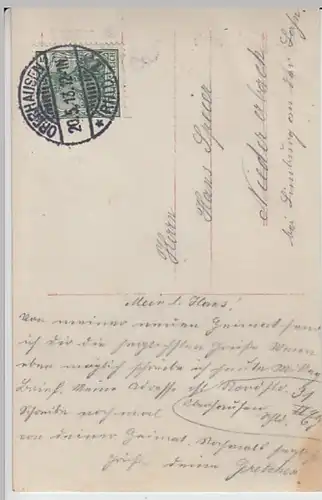 OBERHAUSEN
20.5.13. 12-1N
* (RHLD.)
Herrn
Hans Speier
Niedererbach
bei Limburg an der Lahn
Mein l. Hans!
Von meiner neuen Heimat sende
ich dir die herzlichsten Grüße. Wenn
eben möglich schreibe ich heute Mittag
Brief. Meine Adresse ist Nordstr. 51
Oberhausen
Rhld.
Schreibe nochmal
von deiner Heimat. Nochmals herzl.
Grüße deine Gretchen